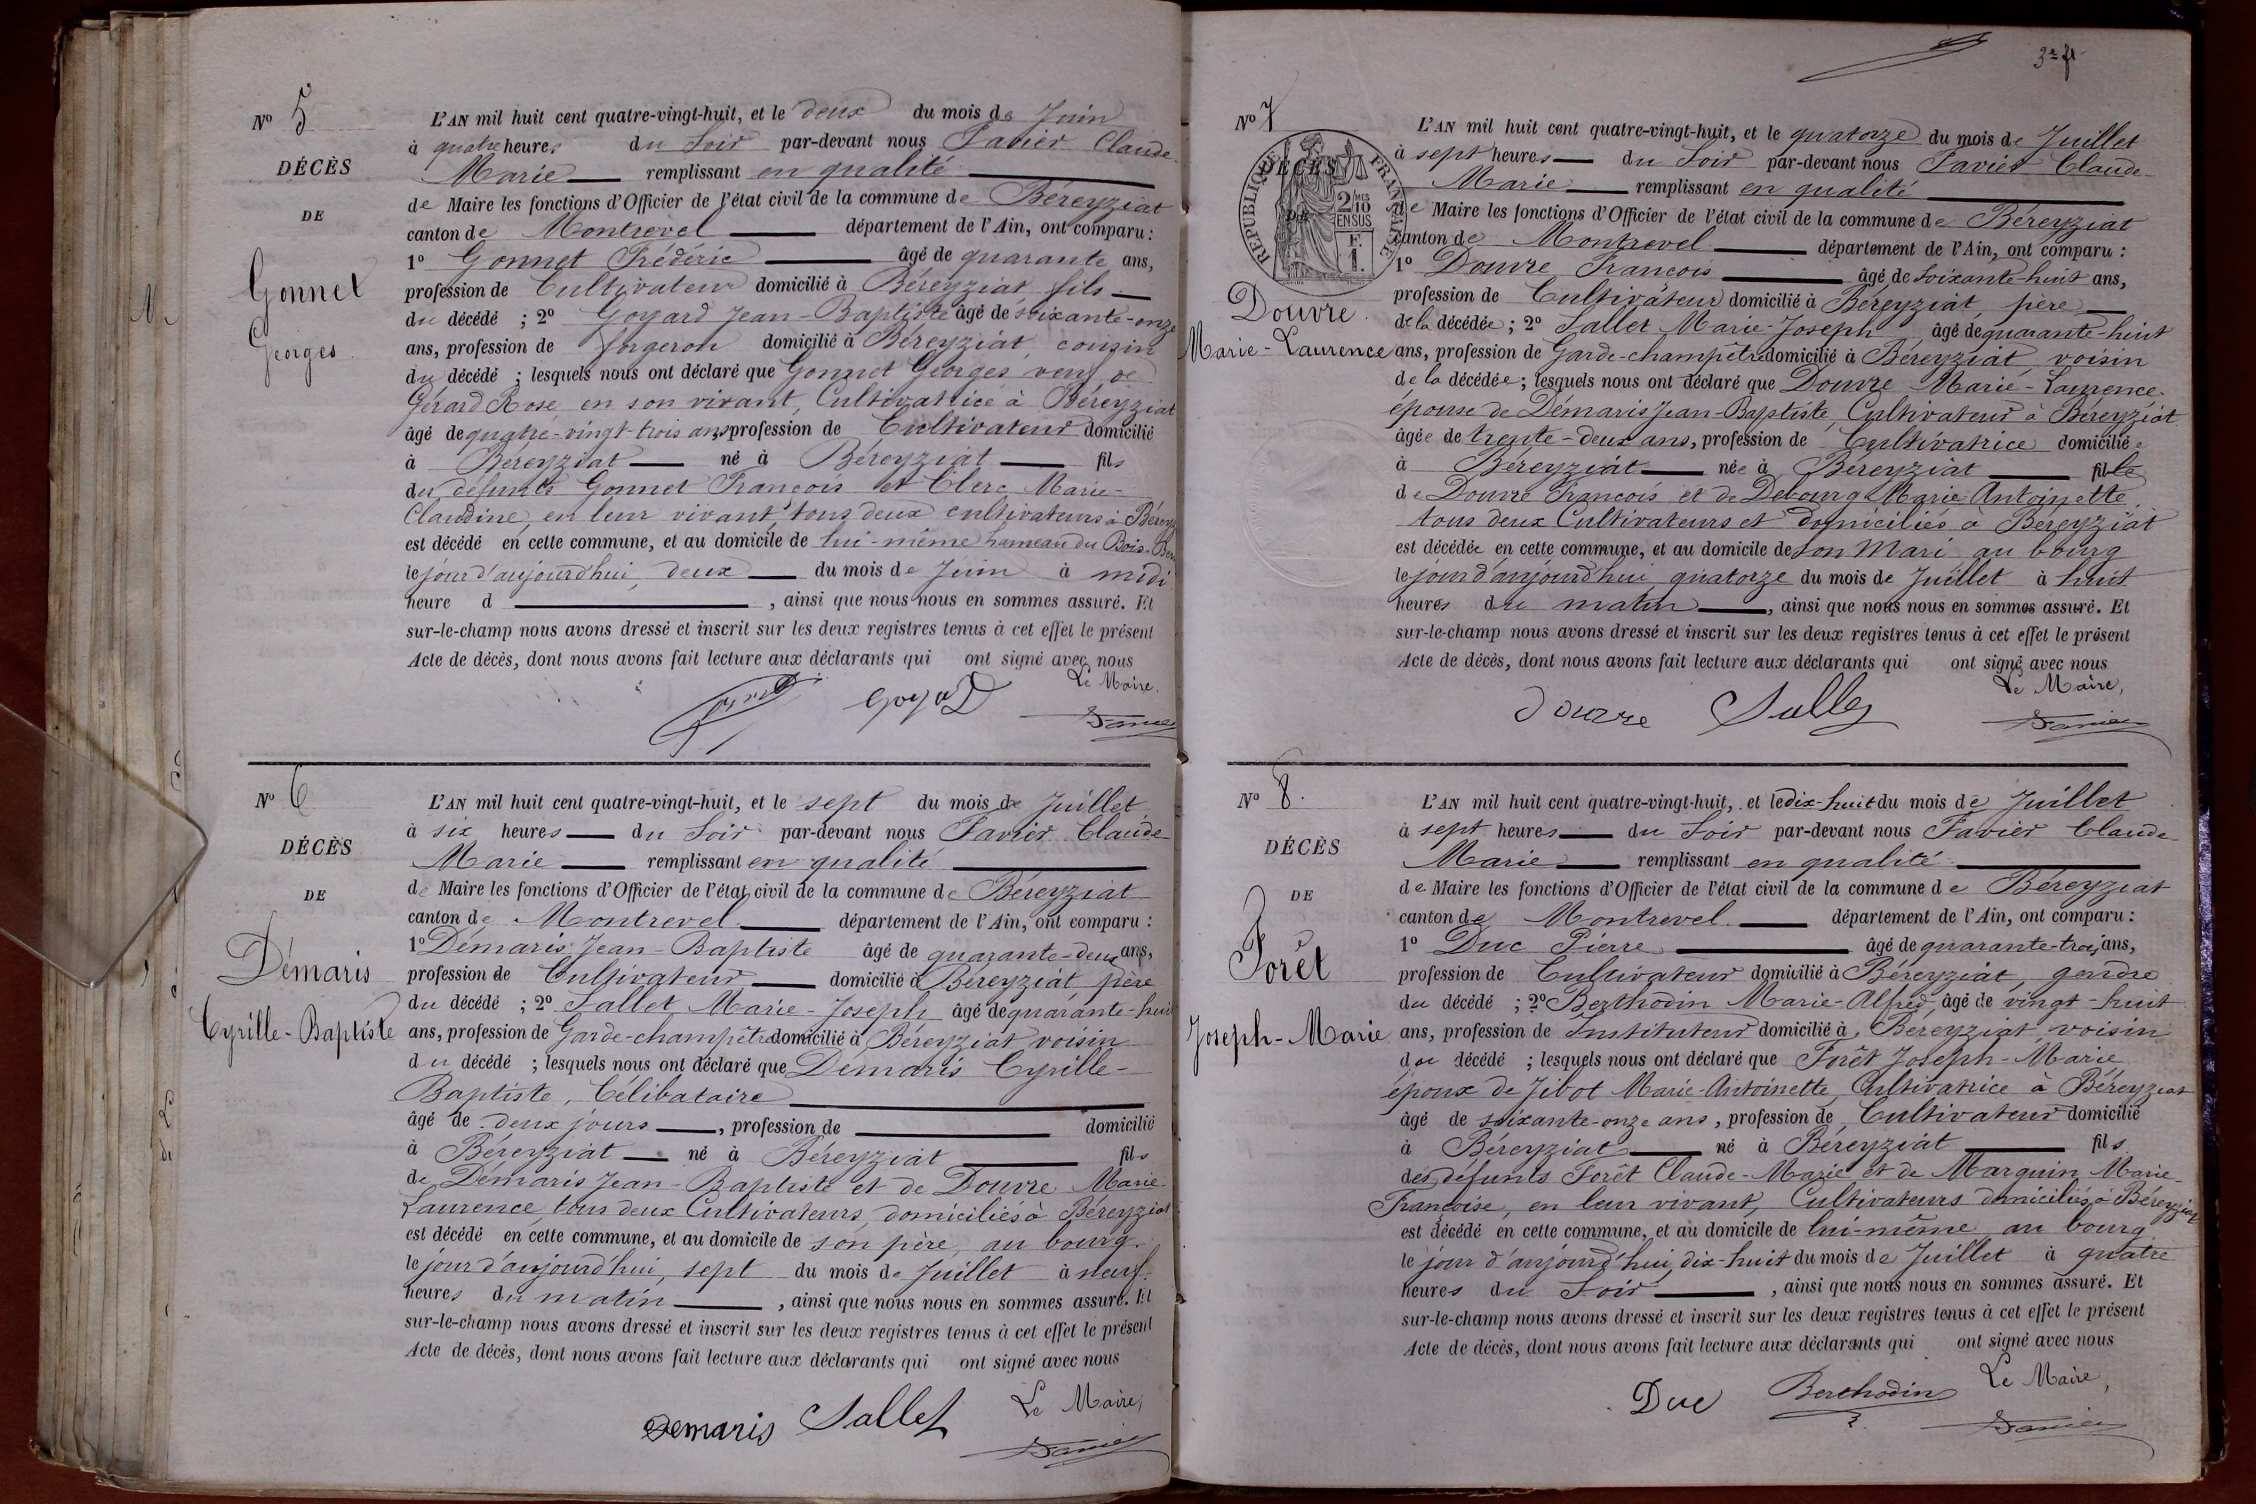 N° 5
DÉCÈS
DE
Gonnet
Georges
L'AN mil huit cent quatre-vingt-huit, et le deux du mois de Juin
à quatre heures du Soir par-devant nous Favier Claude
Marie remplissant en qualité
de Maire les fonctions d'Officier de l'état civil de la commune de Béreyziat
canton de Montrevel département de l'Ain, ont comparu :
1° Gonnet Frédéric âgé de quarante ans,
profession de Cultivateur domicilié à Béreyziat fils
du décédé ; 2° Goyard Jean-Baptiste âgé de soixante-onze
ans, profession de forgeron domicilié à Béreyziat, cousin
du décédé ; lesquels nous ont déclaré que Gonnet Georges veuf de
Gérard Rose, en son vivant, Cultivatrice à Béreyziat
âgé de quatre-vingt-trois ans profession de Cultivateur domicilié
à Béreyziat né à Béreyziat fils
des défunts Gonnet François et Clerc Marie-
Claudine, en leur vivant, tous deux cultivateurs à
est décédé en cette commune, et au domicile de lui-même hameau du Bois-
le jour d'aujourd'hui, deux du mois de Juin à midi
heure d , ainsi que nous nous en sommes assuré. Et
sur-le-champ nous avons dressé et inscrit sur les deux registres tenus à cet effet le présent
Acte de décès, dont nous avons fait lecture aux déclarants qui ont signé avec nous
Le Maire.
Goyard Favier
N° 6
DÉCÈS
DE
Démaris
Cyrille-Baptiste
L'AN mil huit cent quatre-vingt-huit, et le sept du mois de Juillet
à six heures du Soir par-devant nous Favier Claude
Marie remplissant en qualité
de Maire les fonctions d'Officier de l'état civil de la commune de Béreyziat
canton de Montrevel département de l'Ain, ont comparu :
1° Démaris Jean-Baptiste âgé de quarante-deux ans,
profession de Cultivateur domicilié à Béreyziat père
du décédé ; 2° Sallet Marie-Joseph âgé de quarante-huit
ans, profession de Garde-champêtre domicilié à Béreyziat voisin
du décédé ; lesquels nous ont déclaré que Démaris Cyrille-
Baptiste, Célibataire
âgé de deux jours , profession de domicilié
à Béreyziat né à Béreyziat fils
de Démaris Jean-Baptiste et de Douvre Marie-
Laurence, tous deux Cultivateurs, domiciliés à Béreyziat
est décédé en cette commune, et au domicile de son père, au bourg
le jour d'aujourd'hui, sept du mois de Juillet à neuf
heures du matin , ainsi que nous nous en sommes assuré. Et
sur-le-champ nous avons dressé et inscrit sur les deux registres tenus à cet effet le présent
Acte de décès, dont nous avons fait lecture aux déclarants qui ont signé avec nous
Le Maire,
Demaris Sallet Favier
3e f
N° 7
DÉCÈS
DE
RÉPUBLIQUE FRANÇAISE
2/10 EN SUS
F.
1.
Douvre
Marie-Laurence
L'AN mil huit cent quatre-vingt-huit, et le quatorze du mois de Juillet
à sept heures du Soir par-devant nous Favier Claude
Marie remplissant en qualité
de Maire les fonctions d'Officier de l'état civil de la commune de Béreyziat
canton de Montrevel département de l'Ain, ont comparu :
1° Douvre François âgé de soixante-huit ans,
profession de Cultivateur domicilié à Béreyziat, père
de la décédée ; 2° Sallet Marie-Joseph âgé de quarante-huit
ans, profession de Garde-champêtre domicilié à Béreyziat, voisin
de la décédée ; lesquels nous ont déclaré que Douvre Marie-Laurence
épouse de Démaris Jean-Baptiste, Cultivateur à Béreyziat
âgée de trente-deux ans, profession de Cultivatrice domiciliée
à Béreyziat née à Béreyziat fille
de Douvre François et de Debourg Marie Antoinette
tous deux Cultivateurs et domiciliés à Béreyziat
est décédée en cette commune, et au domicile de son Mari au bourg
le jour d'aujourd'hui quatorze du mois de Juillet à huit
heures du matin , ainsi que nous nous en sommes assuré. Et
sur-le-champ nous avons dressé et inscrit sur les deux registres tenus à cet effet le présent
Acte de décès, dont nous avons fait lecture aux déclarants qui ont signé avec nous
Le Maire,
Douvre Sallet Favier
N° 8.
DÉCÈS
DE
Forêt
Joseph-Marie
L'AN mil huit cent quatre-vingt-huit, et le dix-huit du mois de Juillet
à sept heures du Soir par-devant nous Favier Claude
Marie remplissant en qualité
de Maire les fonctions d'Officier de l'état civil de la commune de Béreyziat
canton de Montrevel département de l'Ain, ont comparu :
1° Duc Pierre âgé de quarante-trois ans,
profession de Cultivateur domicilié à Béreyziat, gendre
du décédé ; 2° Berthodin Marie-Alfred, âgé de vingt-huit
ans, profession de Instituteur domicilié à Béreyziat, voisin
du décédé ; lesquels nous ont déclaré que Forêt Joseph-Marie
époux de Jibot Marie-Antoinette, Cultivatrice à Béreyziat
âgé de soixante-onze ans, profession de Cultivateur domicilié
à Béreyziat né à Béreyziat fils
des défunts Forêt Claude-Marie et de Marguin Marie-
Françoise, en leur vivant, Cultivateurs domiciliés à Béreyziat
est décédé en cette commune, et au domicile de lui-même, au bourg
le jour d'aujourd'hui, dix-huit du mois de Juillet à quatre
heures du Soir , ainsi que nous nous en sommes assuré. Et
sur-le-champ nous avons dressé et inscrit sur les deux registres tenus à cet effet le présent
Acte de décès, dont nous avons fait lecture aux déclarants qui ont signé avec nous
Le Maire,
Duc Berthodin Favier